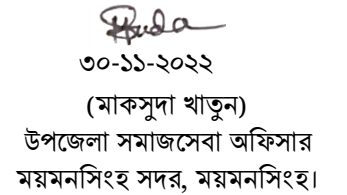 ৩০-১১-২০২২
(মাকসুদা খাতুন)
উপজেলা সমাজসেবা অফিসার
ময়মনসিংহ সদর, ময়মনসিংহ।